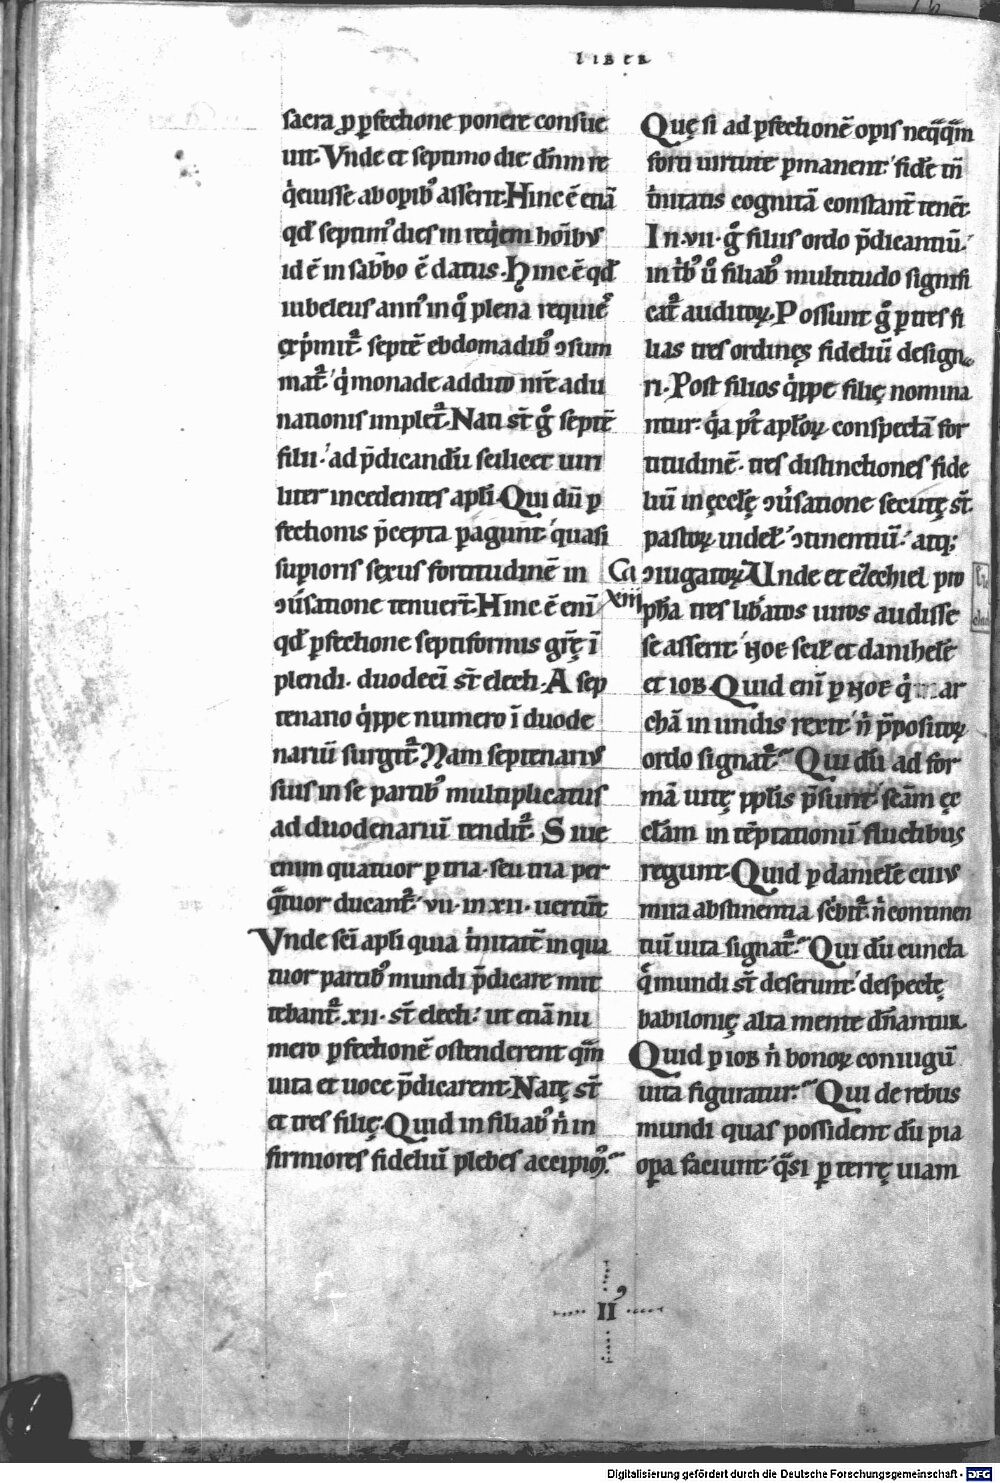 LIBER
sacra ꝓ ꝑfectione ponere consue
uit. Vnde et septimo die dn̄m re
q̇euisse ab opib᷒ asserit. Hinc ē etiā
qđ septim᷒ dies in req̇em hoīb᷒
id ē in sabb̄o ē datus. Hinc ē qđ
iubeleus ann᷒ in q̊ plena requiē
exp̄mit᷑. septē ebdomadib᷒ ↄsum
mat᷑. q̇ monade addito nr̄e adu
nationis implet᷑. Nati st̄ g̊ septē
filii. ad p̄dicandū scilicet uiri
liter incedentes apl̄i. Qui dū ꝑ
fectionis p̄cepta ꝑagunt. quasi
suꝑioris sexus fortitudinē in
ↄu̇satione tenuert̄. Hinc ē enī
qđ ꝑfectione septiformis gr̄ę ī
plendi. duodecī st̄ electi. A sep
tenario q̇ppe numero ī duode
nariū surgit᷑. Nam septenarius
suis in se partib᷒ multiplicatus
ad duodenariū tendit᷑. Siue
enim quatuor ꝑ tria. seu tria per
q̄tuor ducant᷑. vii. in xii. uertunt᷑
Vnde sc̄i apl̄i quia ṫnitatē in qua
tuor partib᷒ mundi p̄dicare mit
tebant᷑. xii. st̄ electi. ut etiā nu
mero ꝑfectionē ostenderent quā
uita et uoce p̄dicarent. Natę st̄
et tres filię. Quid in filiab᷒ n̄ in
firmiores fideliū plebes accipim᷒.
Quę si ad ꝑfectionē opis neq̄q̄m
forti uirtute ꝑmanent. fidē tn̄
ṫnitatis cognitā constant̄ tenēt.
In .vii. g̊ filiis ordo p̄dicantiū.
in ṫb᷒ ů filiab᷒ multitudo signifi
cat᷑ auditoꝝ. Possunt g̊ ꝑ tres fi
lias tres ordinęs fideliū designa
ri. Post filios q̇ppe filię nomina
ntur. q̇a pt̓ aplōꝝ conspectā for
titudinē. tres distinctiones fide
liū in ęccl̄ę ↄu̇satione secutę st̄.
pastoꝝ uidel̄. ↄtinentiū. atq;
Ca
XIIIJ
ↄiugatoꝝ. Unde et ezechiel pro
ph̄a tres lib̄atos uiros audisse
se asserit. NOE scil̄ et danihelē
et IOB. Quid enī ꝑ NOE q̇ ar
chā in undis rexit. n̄ p̄positoꝝ
ordo signat᷑. Qui dū ad for
mā uitę ppl̄is p̄sunt. scām ęc
cl̄am in tēptationū fluctibus
regunt. Quid ꝑ danielē cuius
mira abstinentia sc̓bit᷑. n̄ continen
tiū uita signat᷑. Qui dū cuncta
q̄ mundi st̄ deserunt. despectę
babilonię alta mente dn̄antur.
Quid ꝑ IOB n̄ bonoꝝ coniugū
uita figuratur. Qui de rebus
mundi quas possident dū pia
oꝑa faciunt. q̄si ꝑ terrę uiam
II᷒
Digitalisierung gefördert durch die Deutsche Forschungsgemeinschaft - DFG